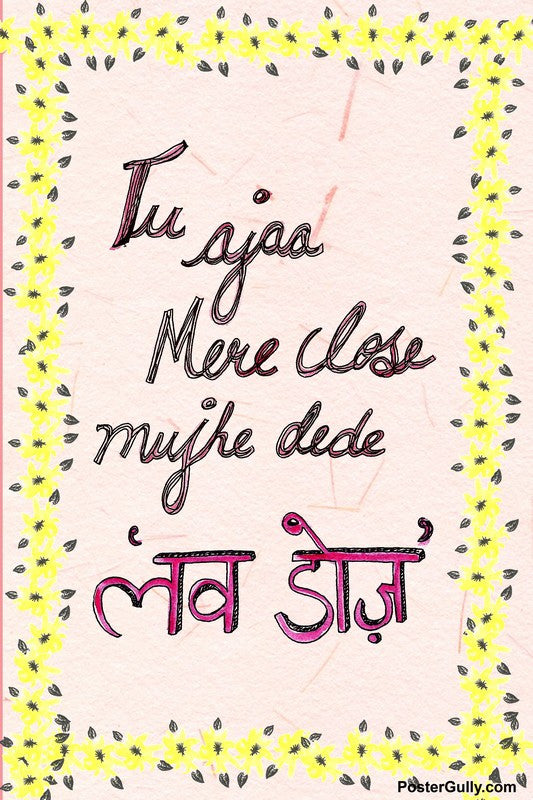 Tu ajaa
Mere close
mujhe dede
'लव डोज़'
PosterGully.com